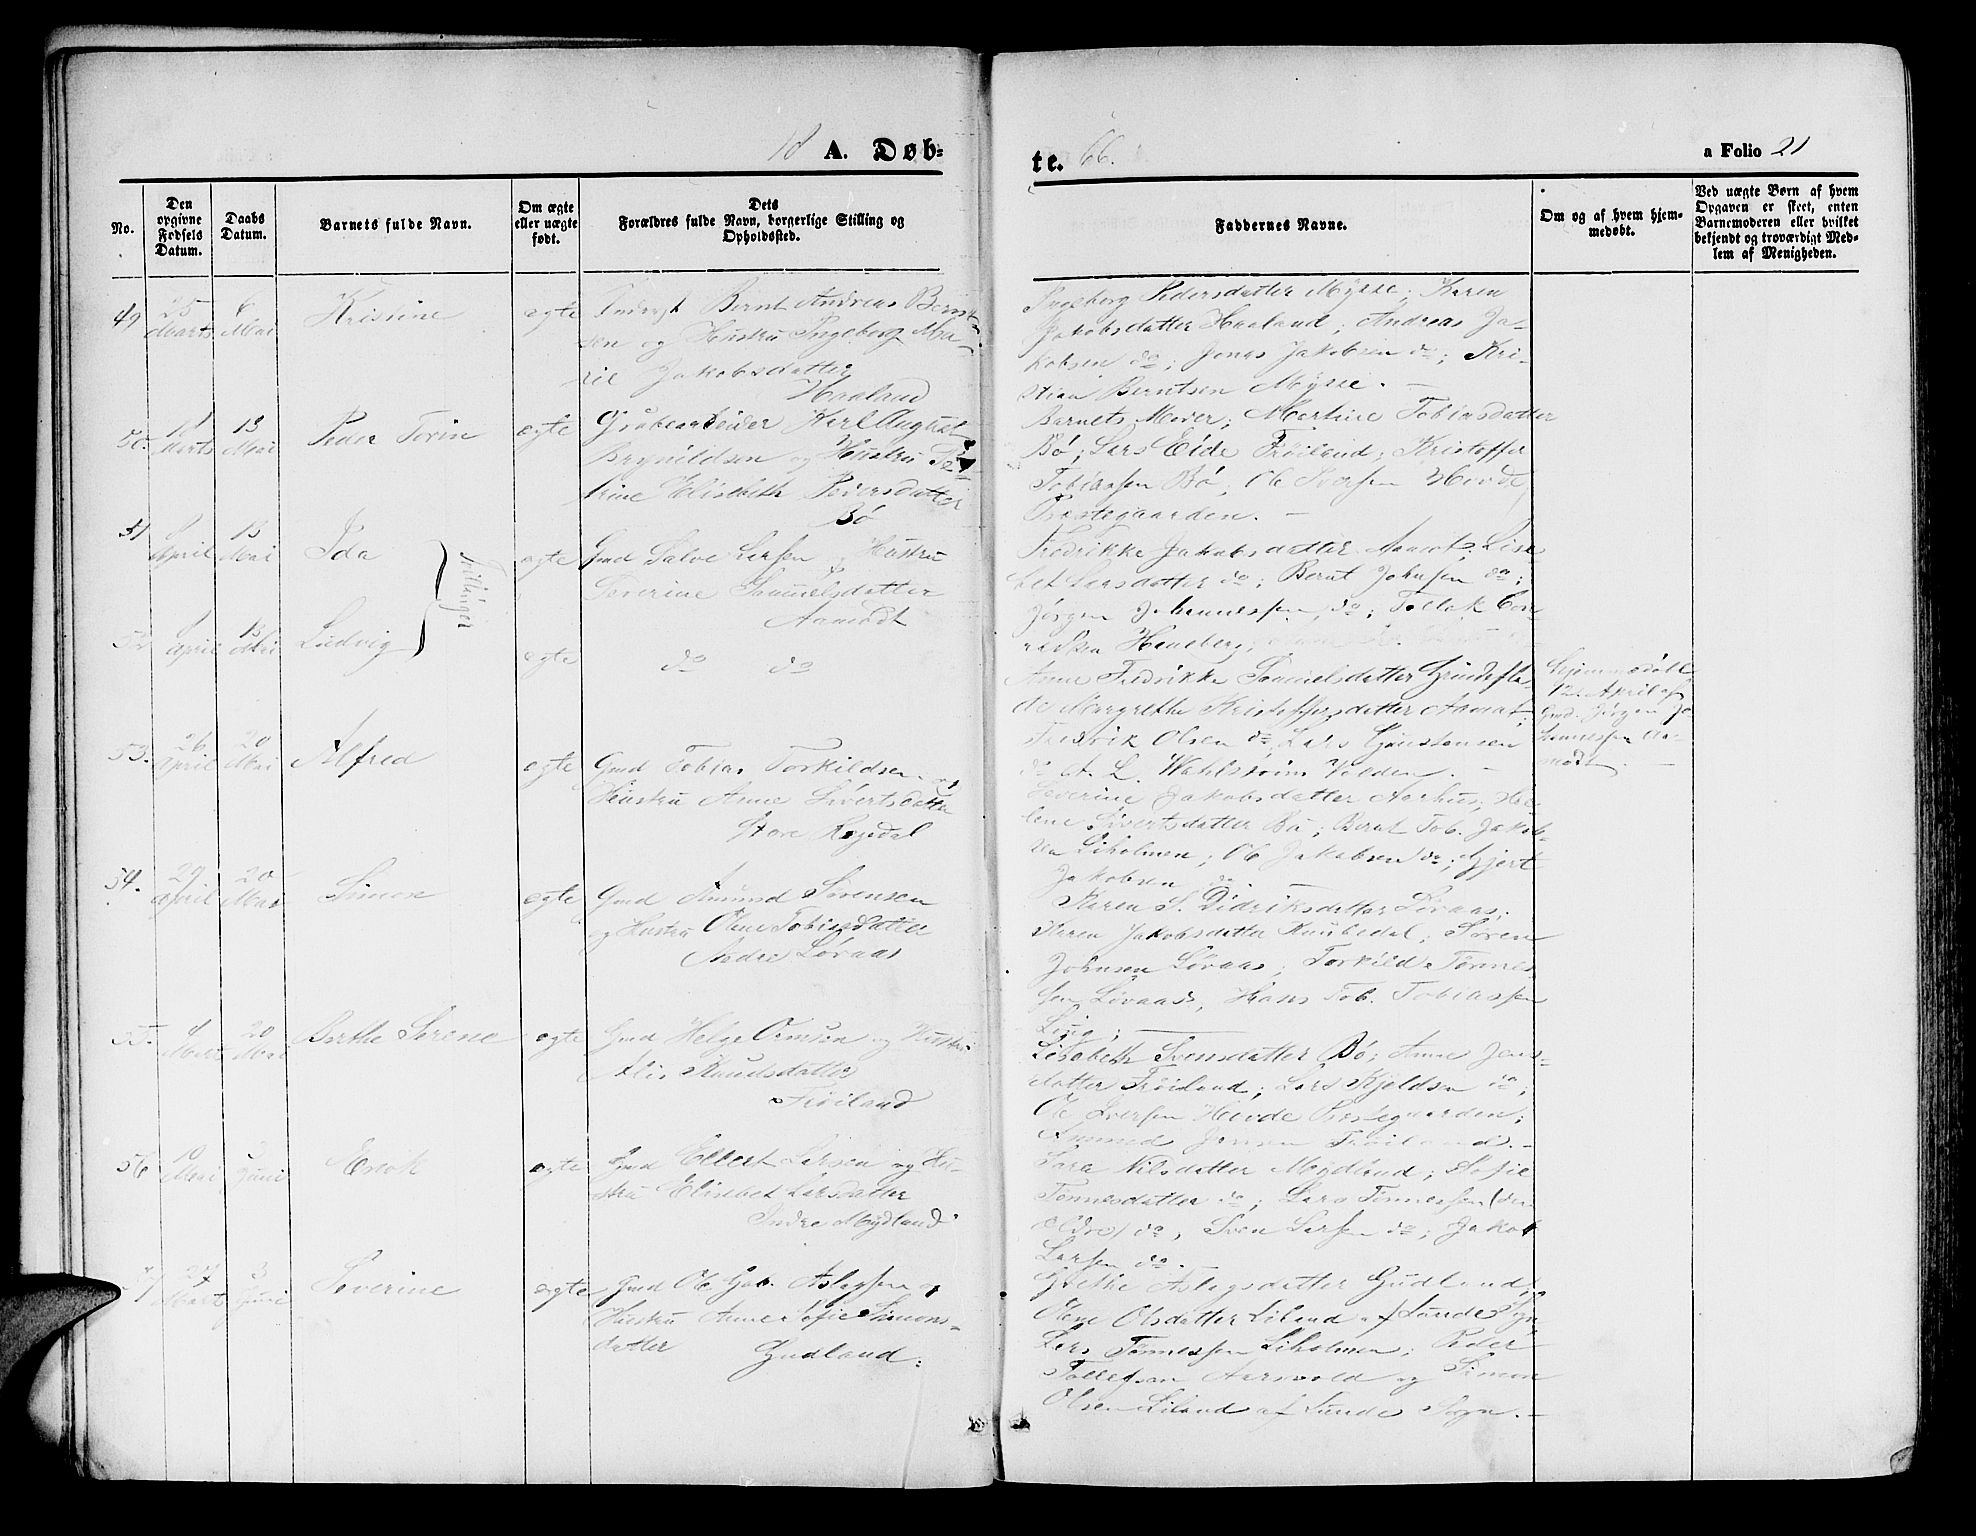 18 A. Døb-
te. 66.
a Folio 21
No.
Den opgivne Fødsels Datum.
Daabs Datum.
Barnets fulde Navn.
Om ægte eller uægte født.
Dets Forældres fulde Navn, borgerlige Stilling og Opholdssted.
Faddernes Navne.
Om og af hvem hjemmedøbt.
Ved uægte Børn af hvem Opgaven er skeet, enten Barnemoderen eller hvilket bekjendt og troværdigt Medlem af Menigheden.
49 25 Marts 6 Mai Kristine egte Bernt Andreas Bernt-
sen og Hustru Ingeborg Ma-
Jakobsdatter
Haaland
Ingeborg Pedersdatter Mysse; Karen
Jakobsdatter Haaland; Andreas Ja-
kobsen do; Jonas Jakobsen do; Kri-
stian Berntsen Mysse. -
50. Marts 13 Mai Peder Torin egte Grubearbeider Karl August
Brynildsen og Hustru
trine Elisbeth Pedersdatter
Bø
Barnets Moder; Martine Tobiasdatter
Bø; Lars Eide Frøiland; Kristoffer
Tobiassen Bø; Ole Iversen Hovde
Prestegaarden. -
51 8 April 13 Mai Ida egte Gmd Salve Larsen og Hustru
Severine Samuelsdatter
Aamodt
Tvillinger
Fredrikke Jakobsdatter Aamot; Lisa-
bet Larsdatter do; Bernt Johnsen do;
Jørgen Johannessen do; Tollak Con-
radsen Heneberg;
52 8 April 13 Mai Ludvig egte do do
Anne Fredrikke Samuelsdatter Grundefla-
de Margrethe Kristoffersdatter Aamot;
Fredrik Olsen do; Lars Gunstensen
do; A. L. Wahlstrøm Volden. -
Hjemmedøbt
12. April af
Gmd. Jørgen Jo-
hannessen Aa-
modt. -
53. 26 April 20 Mai Alfred egte Gmd Tobias Torkildsen og
Hustru Anne Sivertsdatter
Store Regedal
Severine Jakobsdatter Aarhus; He-
lene Sivertsdatter Bø; Bernt Tob. Jakob-
sen Liholmen; Ole Jakobsen do; Gjert
Jakobsen do. -
54. 29 April 20 Mai Simon egte Gmd Amund Sørensen
og Hustru Olene Tobiasdatter
Nedre Løvaas
Karen S. Didriksdatter Løvaas;
Karen Jakobsdatter Knubedal; Søren
Johnsen Løvaas; Torkild Tønnes-
sen Løvaas, Hans Tob. Tobiassen
Ling;
55. 4 Marts 20 Mai Berthe Serene egte Gmd Helge Omsen og Hustru
Alis Knudsdatter
Frøiland
Lisabeth Svensdatter Bø; Anne Jens-
datter Frøiland; Lars Kjeldsen do;
Ole Iversen Hovde Prestegaarden;
Amund Jensen Frøiland. -
56 10 Mai 3 Juni Enok egte Gmd Elbert Larsen og Hu-
stru Elisabet Larsdatter
Indre Mydland
Sara Nilsdatter Mydland; Sofie
Tønnesdatter do; Lars Tønnessen (den
eldre) do, Sven Larsen do; Jakob
Larsen do. -
57 27 Marts 3 Juni Severine egte Gmd Ole Gab. Aslagsen og
Hustru Anne Sofie Simons-
datter Gudland.
Grethe Aslagsdatter Gudland;
Olene Olsdatter Eiland af Lunde Sogn
Lars Tønnessen Liholmen; Peder
Tollefsen Aarsvold og Simon
Olsen Eiland af Lunde Sogn. -